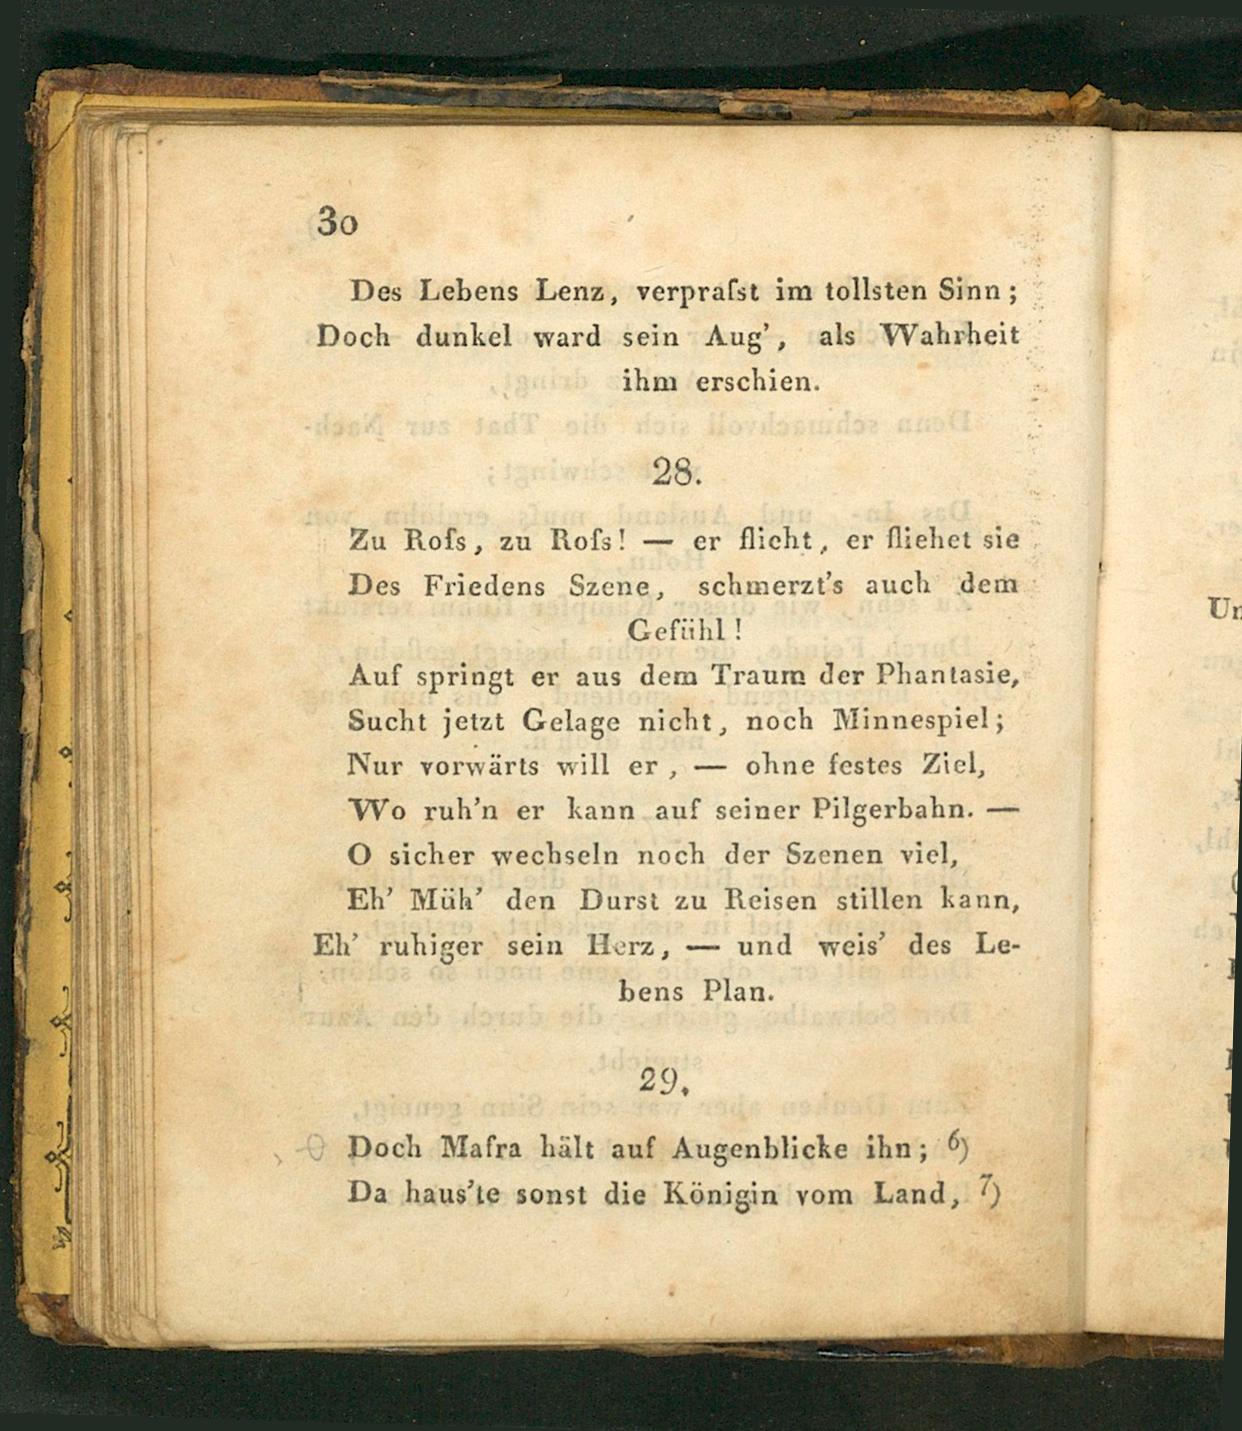 30
Des Lebens Lenz, verpraſst im tollsten Sinn;
Doch dunkel ward sein Aug', als Wahrheit
ihm erschien.
28.
Zu Roſs, zu Roſs! — er flieht, er fliehet sie
Des Friedens Szene, schmerzt's auch dem
Gefühl!
Auf springt er aus dem Traum der Phantasie,
Sucht jetzt Gelage nicht, noch Minnespiel;
Nur vorwärts will er, — ohne festes Ziel,
Wo ruh'n er kann auf seiner Pilgerbahn. —
O sicher wechseln noch der Szenen viel,
Eh' Müh' den Durst zu Reisen stillen kann,
Eh' ruhiger sein Herz, — und weis' des Le-
bens Plan.
29.
Doch Mafra hält auf Augenblicke ihn; 6)
Da haus'te sonst die Königin vom Land, 7)